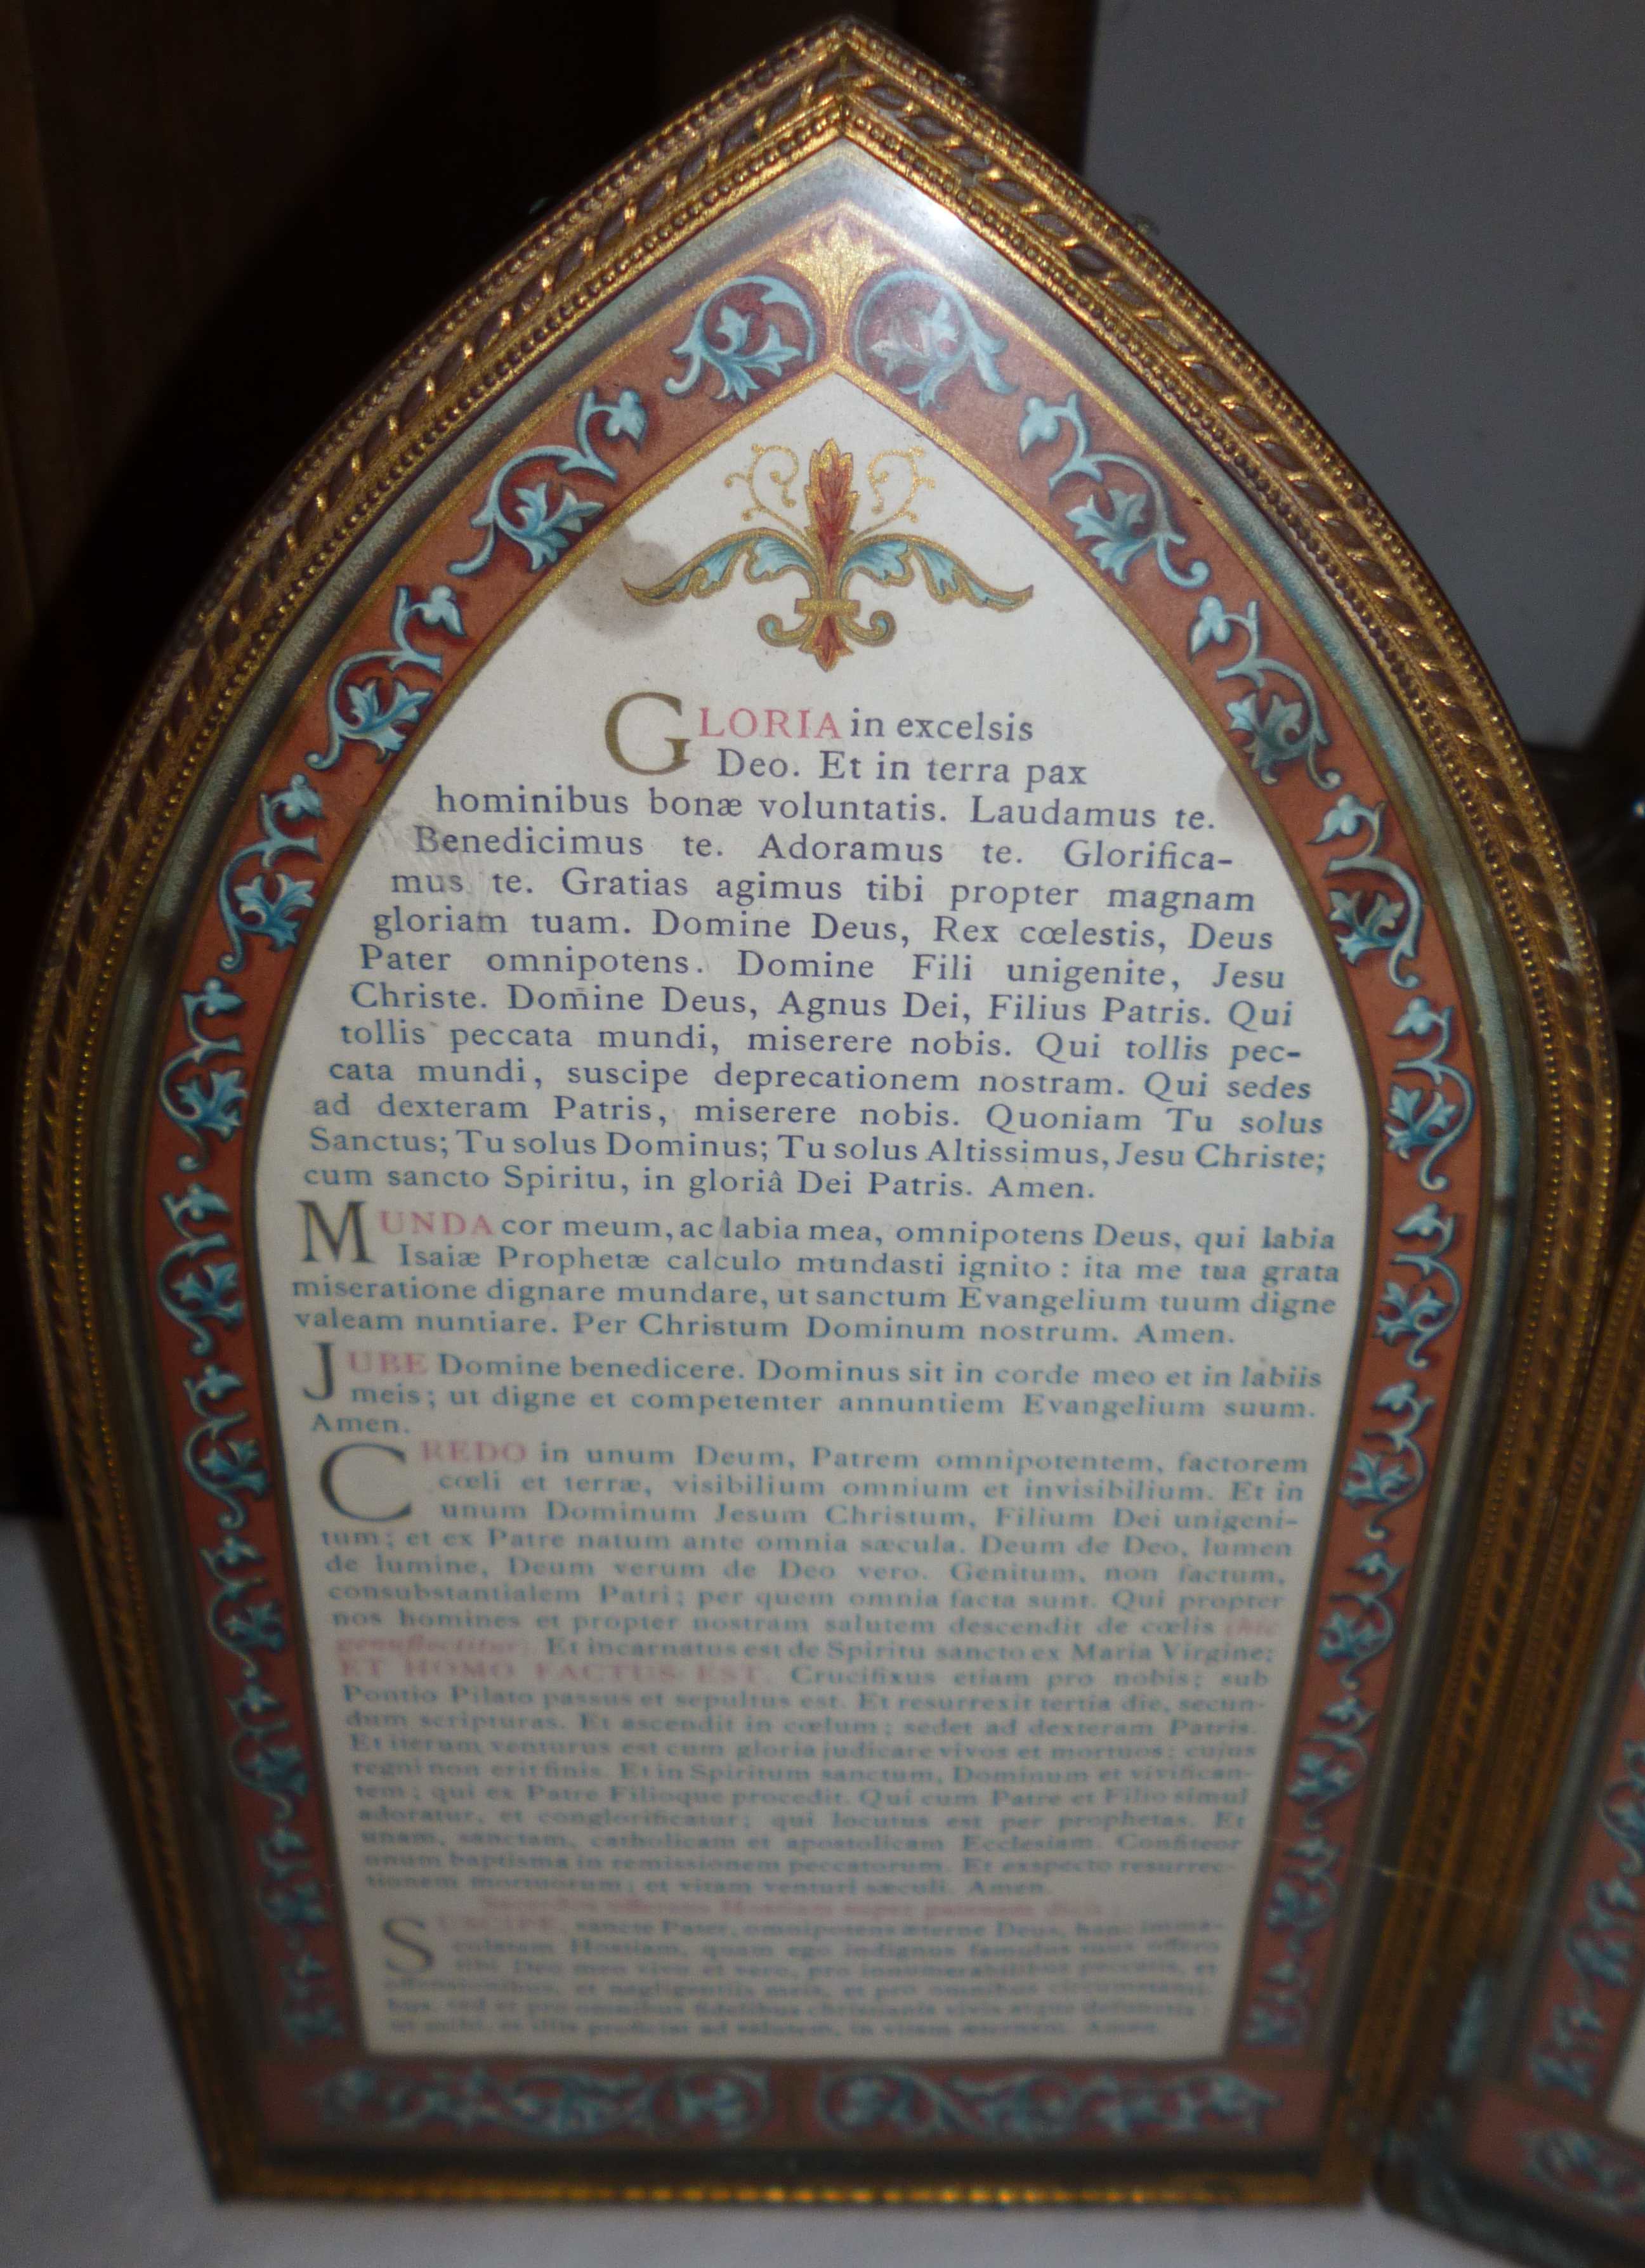 GLORIA in excelsis
Deo. Et in terra pax
hominibus bonæ voluntatis. Laudamus te.
Benedicimus te. Adoramus te. Glorifica-
mus te. Gratias agimus tibi propter magnam
gloriam tuam. Domine Deus, Rex cœlestis, Deus
Pater omnipotens. Domine Fili unigenite, Jesu
Christe. Domine Deus, Agnus Dei, Filius Patris. Qui
tollis peccata mundi, miserere nobis. Qui tollis pec-
cata mundi, suscipe deprecationem nostram. Qui sedes
ad dexteram Patris, miserere nobis. Quoniam Tu solus
Sanctus; Tu solus Dominus; Tu solus Altissimus, Jesu Christe;
cum sancto Spiritu, in gloriâ Dei Patris. Amen.
MUNDA cor meum, ac labia mea, omnipotens Deus, qui labia
Isaiæ Prophetæ calculo mundasti ignito : ita me tua grata
miseratione dignare mundare, ut sanctum Evangelium tuum digne
valeam nuntiare. Per Christum Dominum nostrum. Amen.
JUBE Domine benedicere. Dominus sit in corde meo et in labiis
meis; ut digne et competenter annuntiem Evangelium suum.
Amen.
CREDO in unum Deum, Patrem omnipotentem, factorem
cœli et terræ, visibilium omnium et invisibilium. Et in
unum Dominum Jesum Christum, Filium Dei unigeni-
tum; et ex Patre natum ante omnia sæcula. Deum de Deo, lumen
de lumine, Deum verum de Deo vero. Genitum, non factum,
consubstantialem Patri; per quem omnia facta sunt. Qui propter
nos homines et propter nostram salutem descendit de cœlis (hic
genuflectitur). Et incarnatus est de Spiritu sancto ex Maria Virgine;
ET HOMO FACTUS EST. Crucifixus etiam pro nobis; sub
Pontio Pilato passus et sepultus est. Et resurrexit tertia die, secun-
dum scripturas. Et ascendit in cœlum; sedet ad dexteram Patris.
Et iterum venturus est cum gloria judicare vivos et mortuos; cujus
regni non erit finis. Et in Spiritum sanctum, Dominum et vivifican-
tem; qui ex Patre Filioque procedit. Qui cum Patre et Filio simul
adoratur, et conglorificatur; qui locutus est per prophetas. Et
unam, sanctam, catholicam et apostolicam Ecclesiam. Confiteor
unum baptisma in remissionem peccatorum. Et exspecto resurrec-
tionem mortuorum; et vitam venturi sæculi. Amen.
SUSCIPE, sancte Pater, omnipotens æterne Deus, hanc imma-
culatam Hostiam, quam ego indignus famulus tuus offero
tibi Deo meo vivo et vero, pro innumerabilibus peccatis, et
offensionibus, et negligentiis meis, et pro omnibus circumstanti-
bus, sed et pro omnibus fidelibus christianis vivis atque defunctis;
ut mihi, et illis proficiat ad salutem, in vitam æternam. Amen.